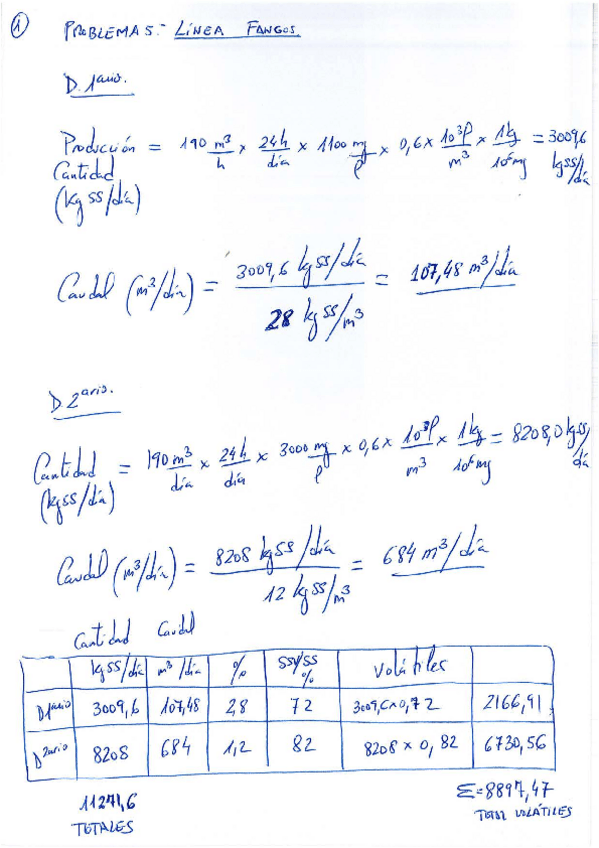 ①
PROBLEMA 5.- LÍNEA FANGOS.
D. 1ario.
Producción = 190 m³/h x 24h/día x 1100 mg/l x 0,6 x 10³l/m³ x 1kg/10⁶mg = 3009,6 kgss/día
Cantidad
(kg ss/día)
Caudal (m³/día) = 3009,6 kgss/día / 28 kgss/m³ = 107,48 m³/día
D 2ario.
Cantidad = 190 m³/día x 24h/día x 3000 mg/l x 0,6 x 10³l/m³ x 1kg/10⁶mg = 8208,0 kgss/día
(kgss/día)
Caudal (m³/día) = 8208 kgss/día / 12 kgss/m³ = 684 m³/día
Cantidad Caudal
kgss/día m³/día % SSV/SS % Volátiles
D1ario 3009,6 107,48 2,8 72 3009,6x0,72 2166,91
D2ario 8208 684 1,2 82 8208 x 0,82 6730,56
11271,6 Σ=8897,47
TOTALES TOTAL VOLÁTILES